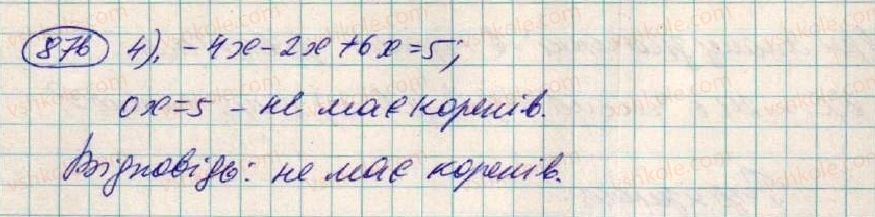 876 4). -4x-2x+6x=5;
0x=5 - не має коренів.
Відповідь: не має коренів.